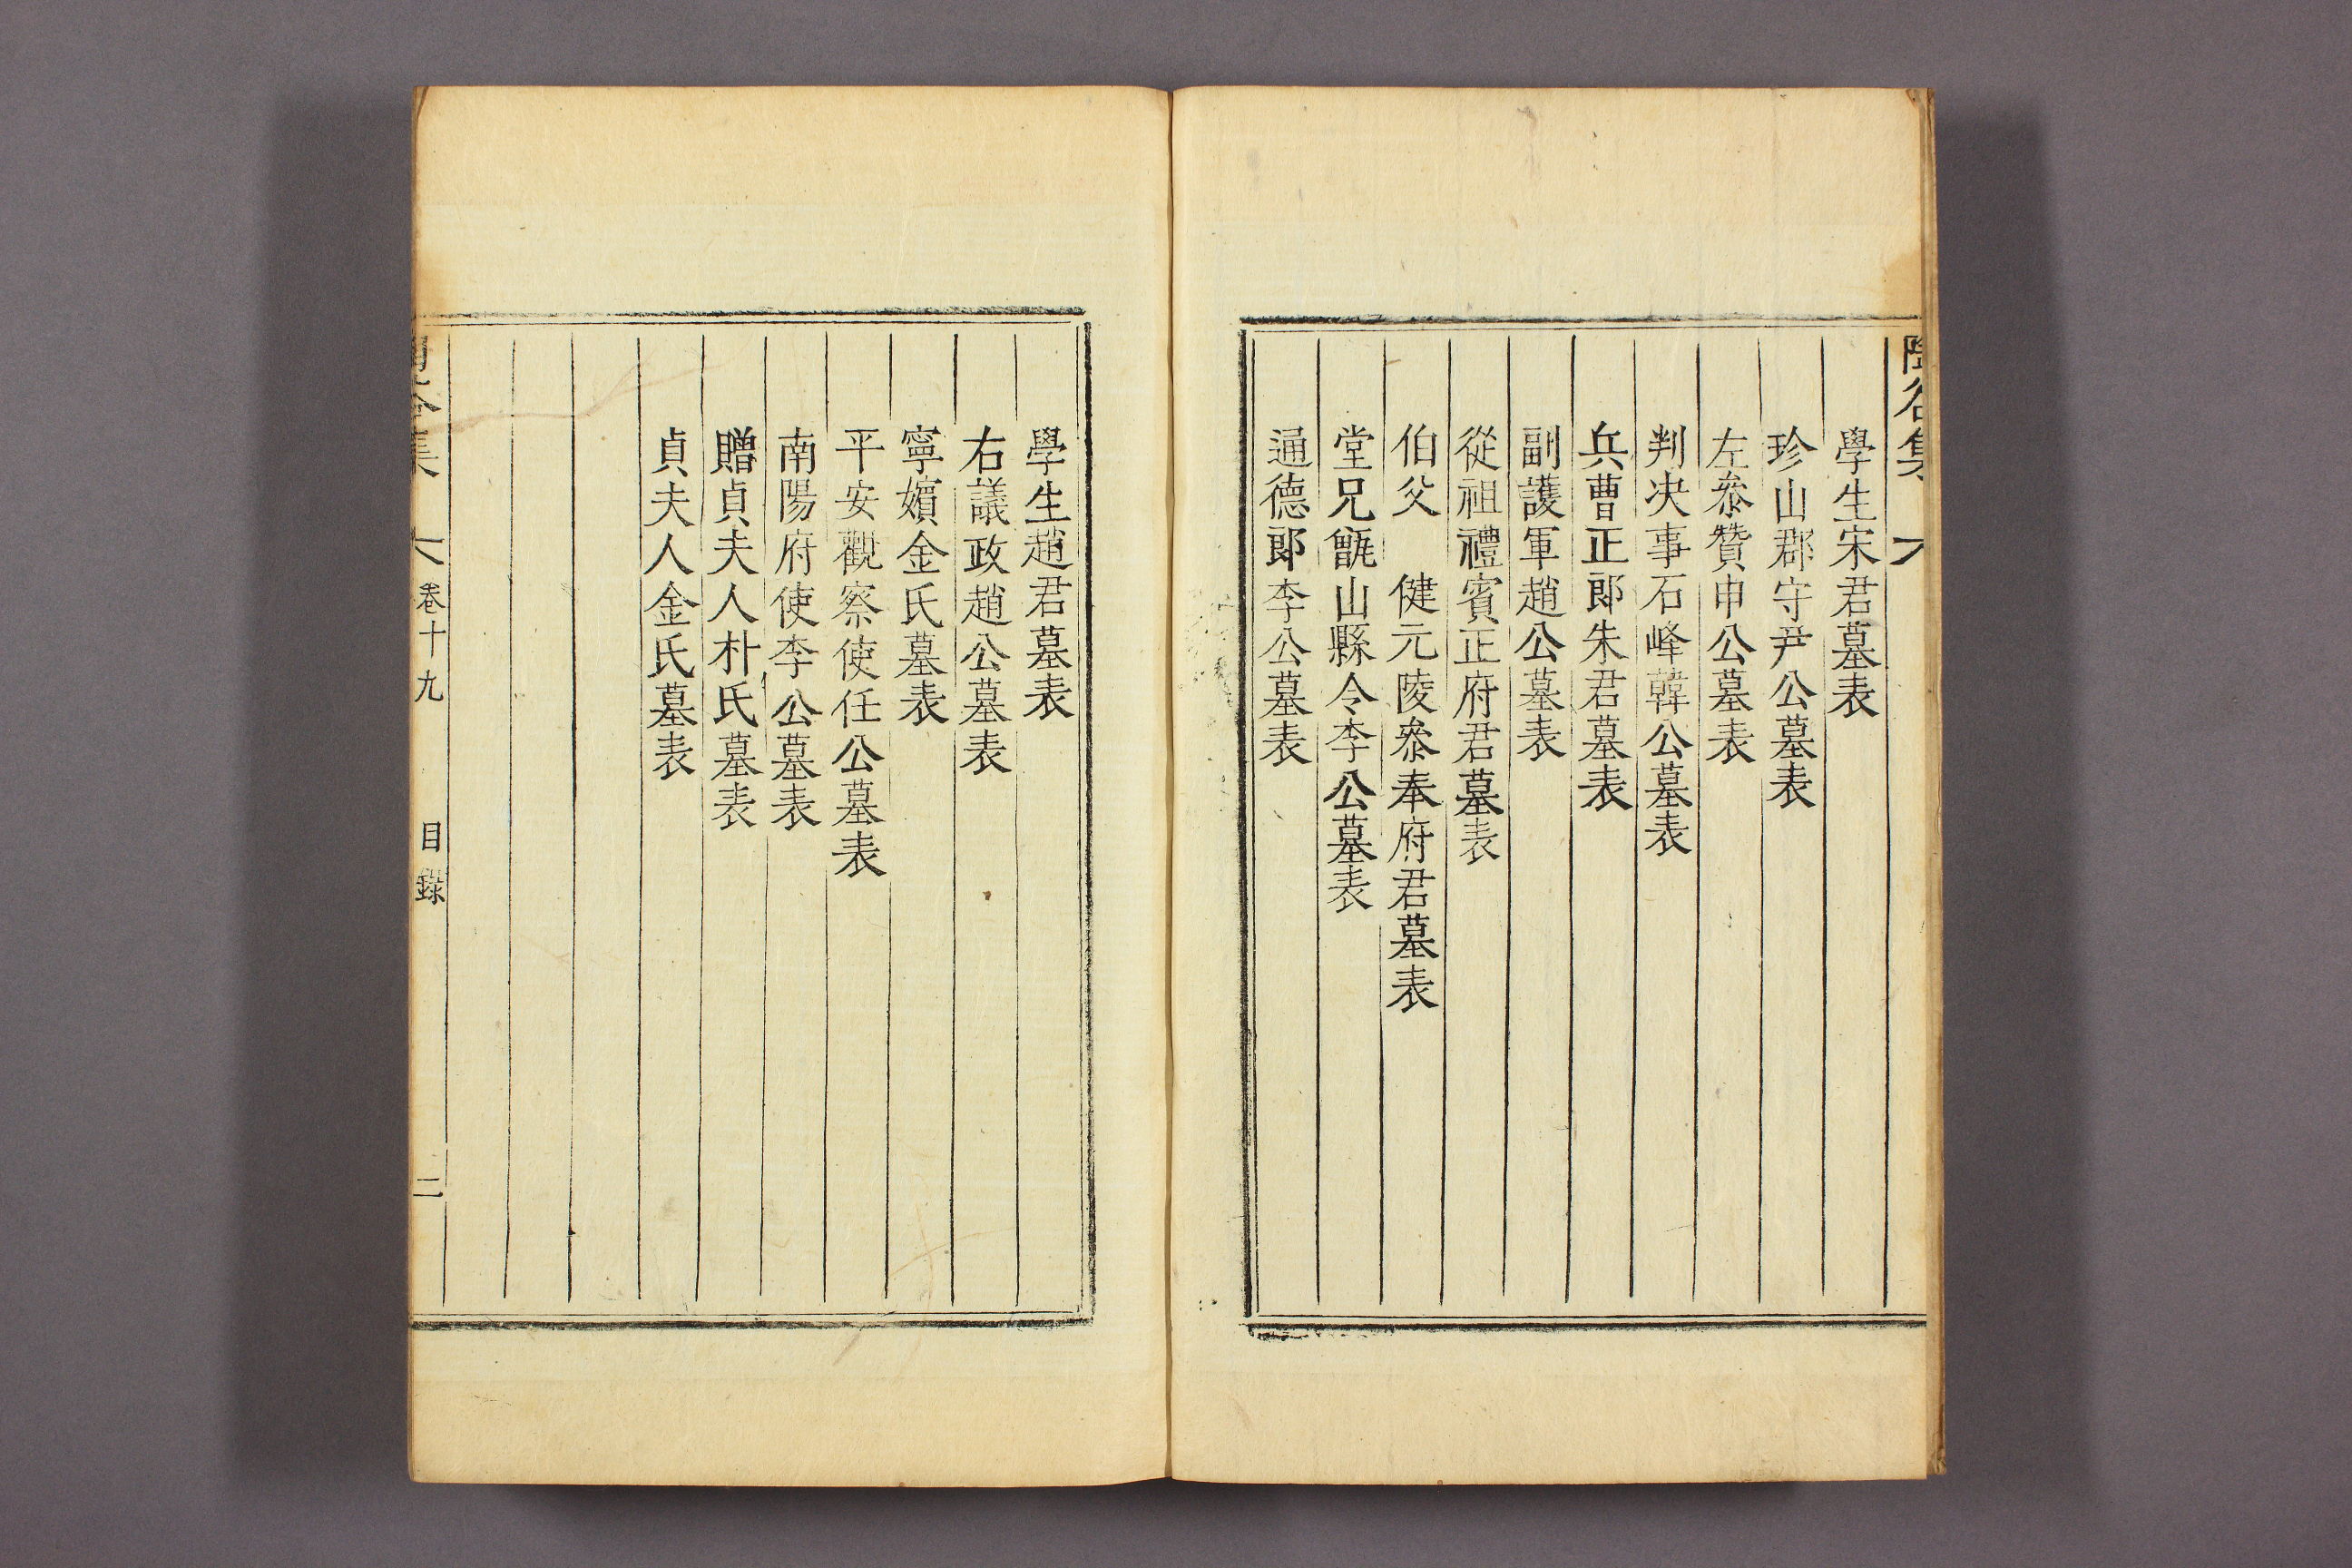 谷集
學生宋君墓表
珍山郡守尹公墓表
左叅贊申公墓表
判决事石峰韓公墓表
兵曹正郎朱君墓表
副護軍趙公墓表
從祖禮賓正府君墓表
伯父 健元陵叅奉府君墓表
堂兄甑山縣令李公墓表
通德郎李公墓表
學生趙君墓表
右議政趙公墓表
寧嬪金氏墓表
平安觀察使任公墓表
南陽府使李公墓表
贈貞夫人朴氏墓表
貞夫人金氏墓表
谷集 卷十九 目錄 二